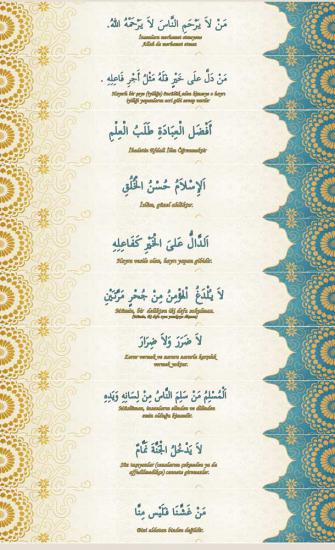 مَنْ لاَ يَرْحَمِ النَّاسَ لاَ يَرْحَمْهُ اللهُ.
İnsanlara merhamet etmeyene
Allah da merhamet etmez
مَنْ دَلَّ عَلَى خَيْرٍ فَلَهُ مِثْلُ أَجْرِ فَاعِلِهِ .
Hayırlı bir şeye (iyiliğe) öncülük eden kimseye o hayrı
iyiliği yapanların ecri gibi sevap vardır
أَفْضَلُ الْعِبَادَةِ طَلَبُ الْعِلْمِ
İbadetin Efdali İlim Öğrenmektir
اَلإِسْلاَمُ حُسْنُ الْخُلُقِ
İslâm, güzel ahlâktır.
اَلدَّالُّ عَلَىَ الْخَيْرِ كَفَاعِلِهِ
Hayra vesile olan, hayrı yapan gibidir.
لاَ يُلْدَغُ الْمُؤْمِنُ مِنْ جُحْرٍ مَرَّتَيْنِ
Mümin, bir delikten iki defa sokulmaz.
لاَ ضَرَرَ وَلاَ ضِرَارَ
Zarar vermek ve zarara zararla karşılık
vermek yoktur.
اَلْمُسْلِمُ مَنْ سَلِمَ النَّاسُ مِنْ لِسَانِهِ وَيَدِهِ
Müslüman, insanların elinden ve dilinden
emin olduğu kimsedir.
لاَ يَدْخُلُ الْجَنَّةَ نَمَّامٌ
Söz taşıyanlar (cezalarını çekmeden ya da
affedilmedikçe) cennete giremezler.
مَنْ غَشَّنَا فَلَيْسَ مِنَّا
Bizi aldatan bizden değildir.